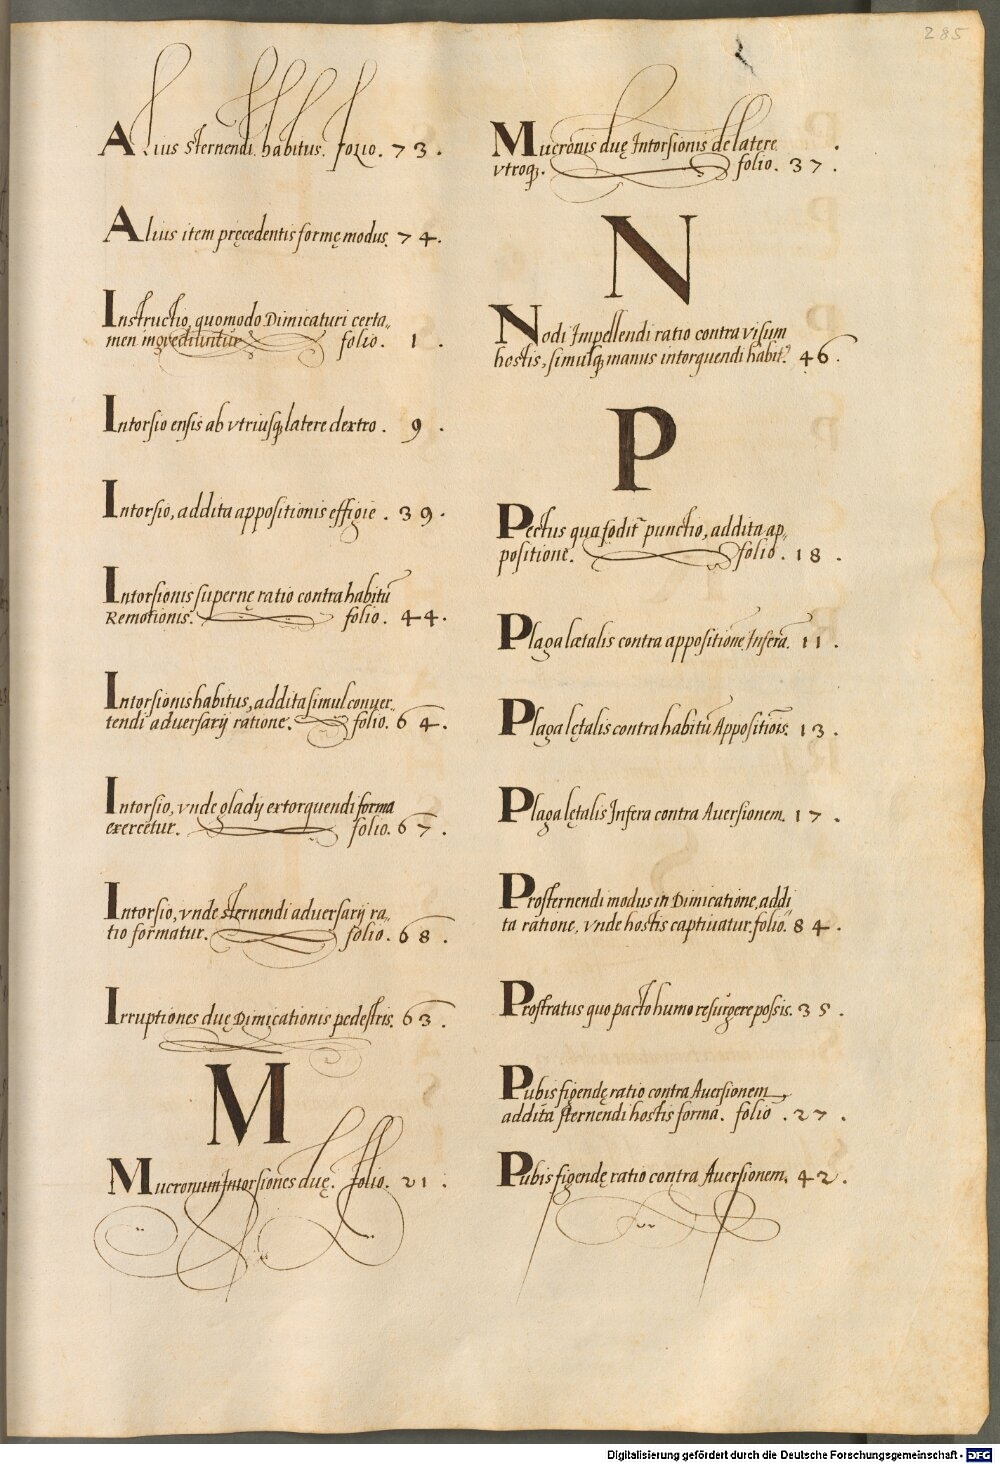 285
Alius sternendi habitus. folio. 73.
Alius item pręcedentis formę modus. 74.
Instructio, quomodo Dimicaturi certa„
men ingrediuntur folio. 1.
Intorsio ensis ab vtriusq; latere dextro. 9.
Intorsio, addita appositionis effigie. 39.
Intorsionis supernę ratio contra habitū
Remotionis. folio. 44.
Intorsionis habitus, addita simul conuer„
tendi aduersarij ratione. folio. 64.
Intorsio, vnde gladij extorquendi forma
exercetur. folio. 67.
Intorsio, vnde sternendi aduersarij ra„
tio formatur. folio. 68.
Irruptiones duę Dimicationis pedestris. 63.
M
Mucronum Intorsiones duę. folio. 21.
Mucronis duę Intorsionis de latere
vtroq;. folio. 37.
N
Nodi Impellendi ratio contra visum
hostis, simulq; manus intorquendi habit9. 46.
P
Pectus qua fodit̃ punctio, addita ap„
positione. folio. 18.
Plaga lætalis contra appositionē Inferā. 11.
Plaga lętalis contra habitū Appositiōis. 13.
Plaga lętalis Infera contra Auersionem. 17.
Prosternendi modus in Dimicatione, addi„
ta ratione, vnde hostis captiuatur. folio. 84.
Prostratus quo pacto humo resurgere possis. 35.
Pubis figendę ratio contra Auersionem
addita sternendi hostis forma. folio. 27.
Pubis figendę ratio contra Auersionem. 42.
Digitalisierung gefördert durch die Deutsche Forschungsgemeinschaft - DFG